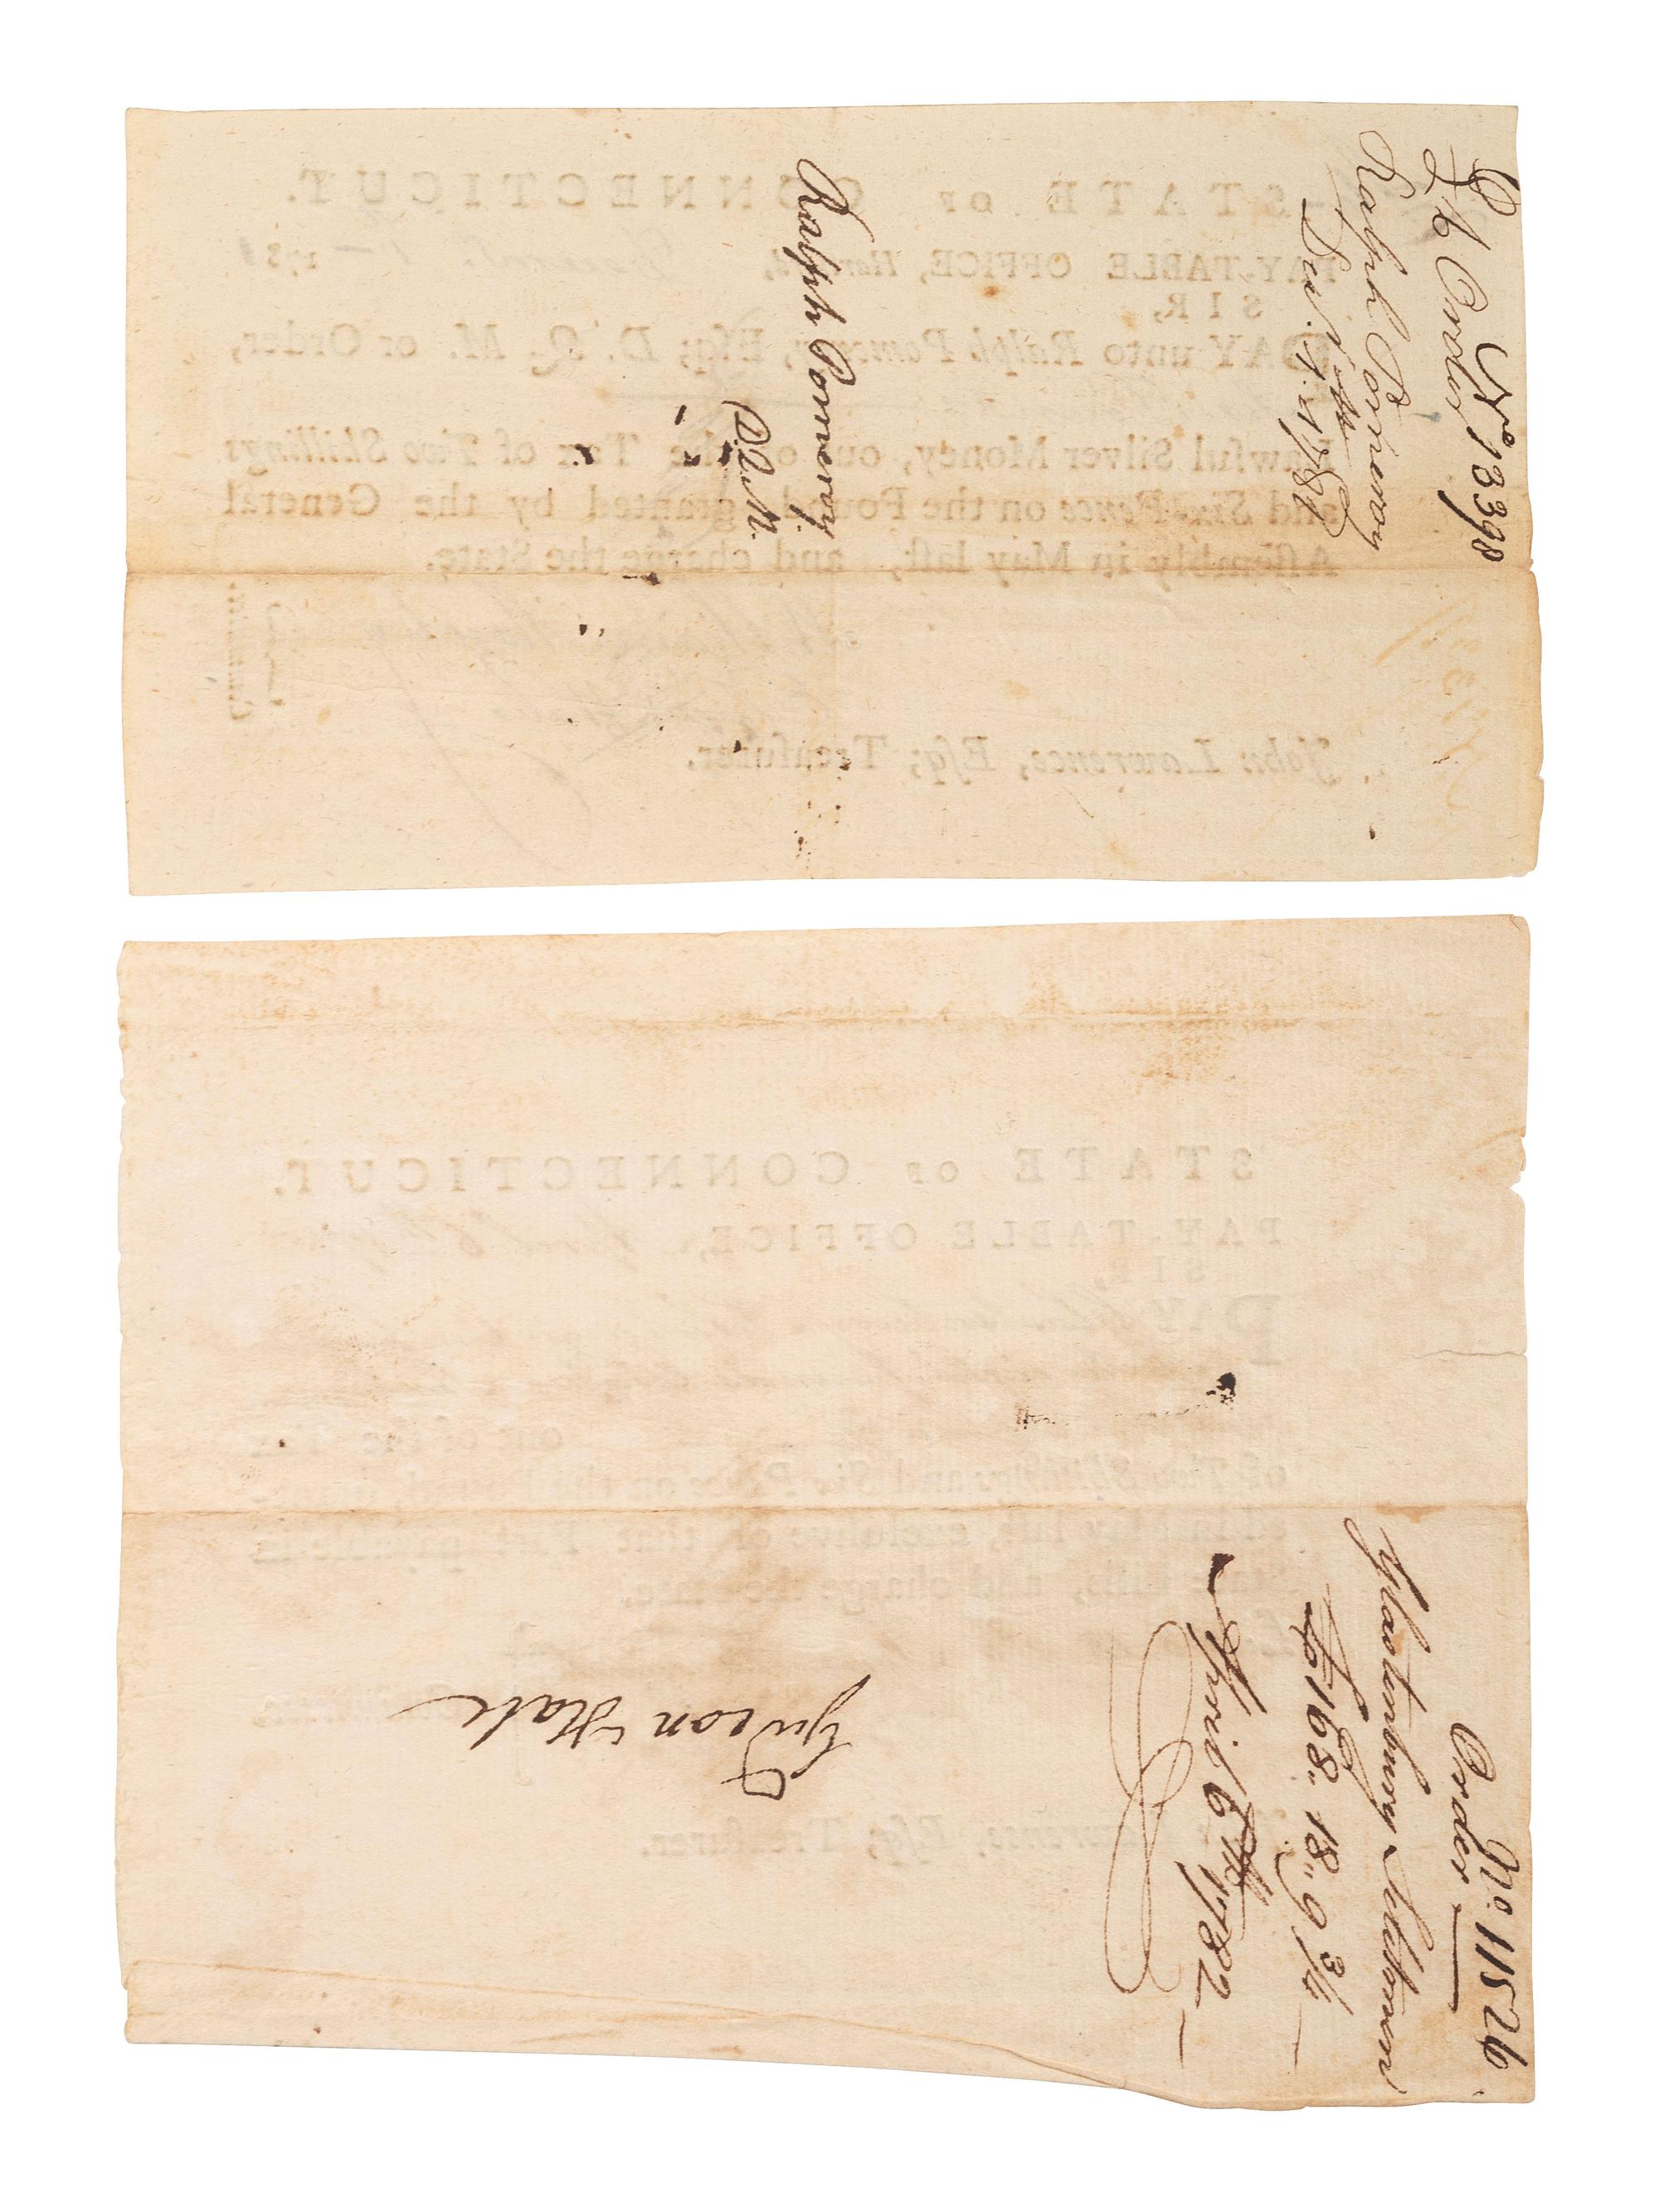 Nº 13398
Order
Ralph Pomeroy
Decr. 1st. 1781
Ralph Pomeroy
D.Q.M.
STATE OF CONNECTICUT.
PAY-TABLE OFFICE, Hartford, 1 — 178
SIR,
PAY unto Ralph Pomeroy, Esq; D. Q. M. or Order,
Lawful Silver Money, out of the Tax of Two Shillings
and Six-Pence on the Pound, granted by the General
Assembly in May last, and charge the State.
John Lawrence, Esq; Treasurer.
Nº. 11526
Order
Glastenbury Selectmen
£168.. 18.. 9 3/4
April 6th 1782
Gideon Hale
STATE OF CONNECTICUT.
PAY-TABLE OFFICE,
SIR,
PAY
out of the Tax
of Two Shillings and Six Pence on the Pound, grant-
ed in May last, exclusive of that Part payable in
and charge the State.
Esq; Treasurer.